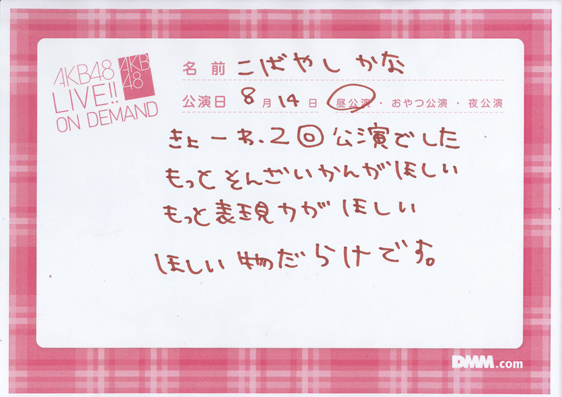 AKB48
LIVE!!
ON DEMAND
AKB
48
名前 こばやし かな
公演日 8月14日 昼公演・おやつ公演・夜公演
きょーわ、2回公演でした
もっとそんざいかんがほしい
もっと表現力がほしい
ほしい物だらけです。
DMM.com